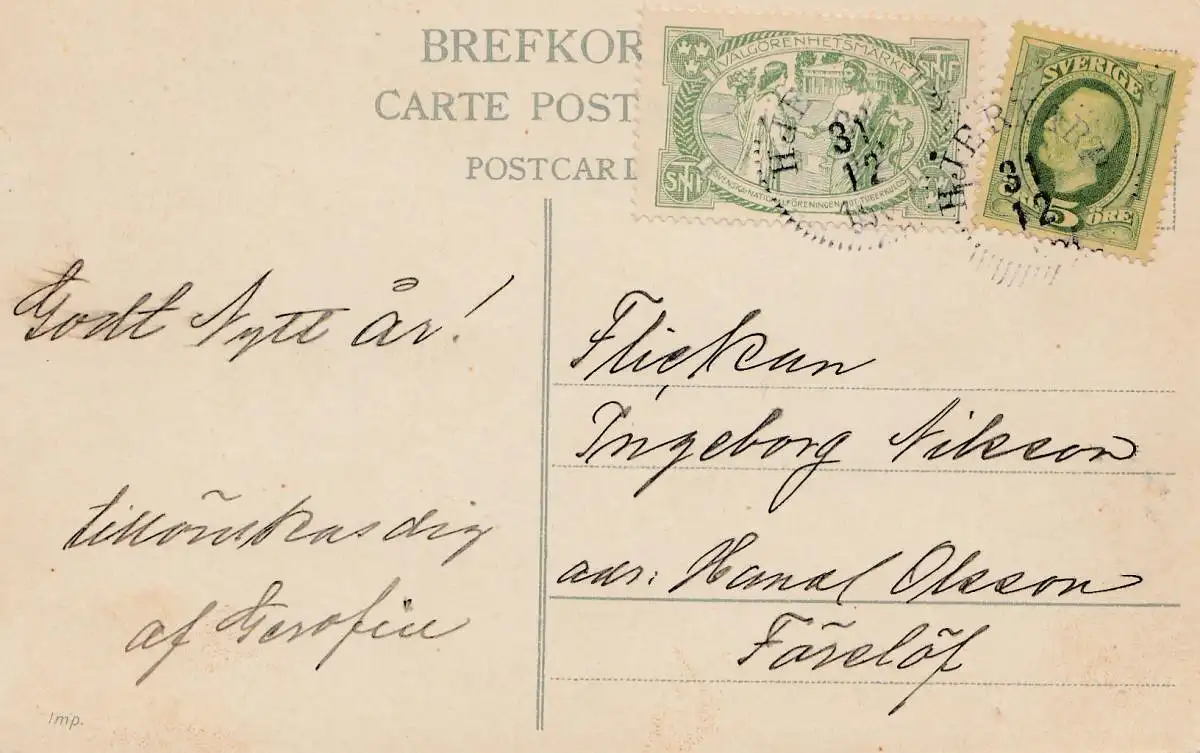 BREFKOR
CARTE POST
POSTCAR
VÄLGÖRENHETSMÄRKE
SNF
SNF
SVENSKA NATIONALFÖRENINGEN MOT TUBERKULOS
SVERIGE
5 ÖRE
HJE
31
12
HJERNARP
31
12
Godt Nytt år!
tillönskas dig
af
Flickan
Ingeborg Nilsson
adr: Olsson
Förslöf
Imp.